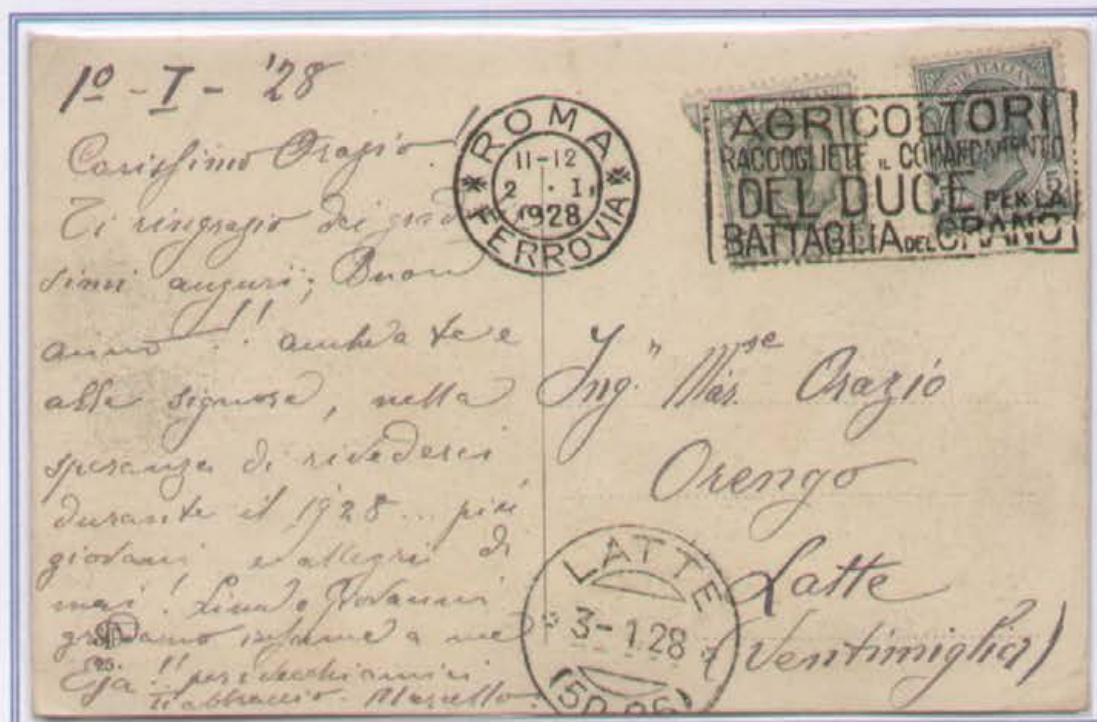 1º - I - '28
Carissimo Orazio
Ti ringrazio dei
simi auguri; Buon
anno!! anche a te e
alla signora, nella
speranza di rivederci
durante il 1928... più
giovani e allegri di
mai! Lina e Giovanni
gridano insieme a me
Eja!!
ti abbraccio. Marcello
95.
ROMA
11-12
2 . I.
1928
FERROVIA
AGRICOLTORI
RACCOGLIETE IL COMANDAMENTO
DEL DUCE PER LA
BATTAGLIA DEL GRANO
Ing. Mar.se Orazio
Orengo
Latte
(Ventimiglia)
LATTE
3-1.28